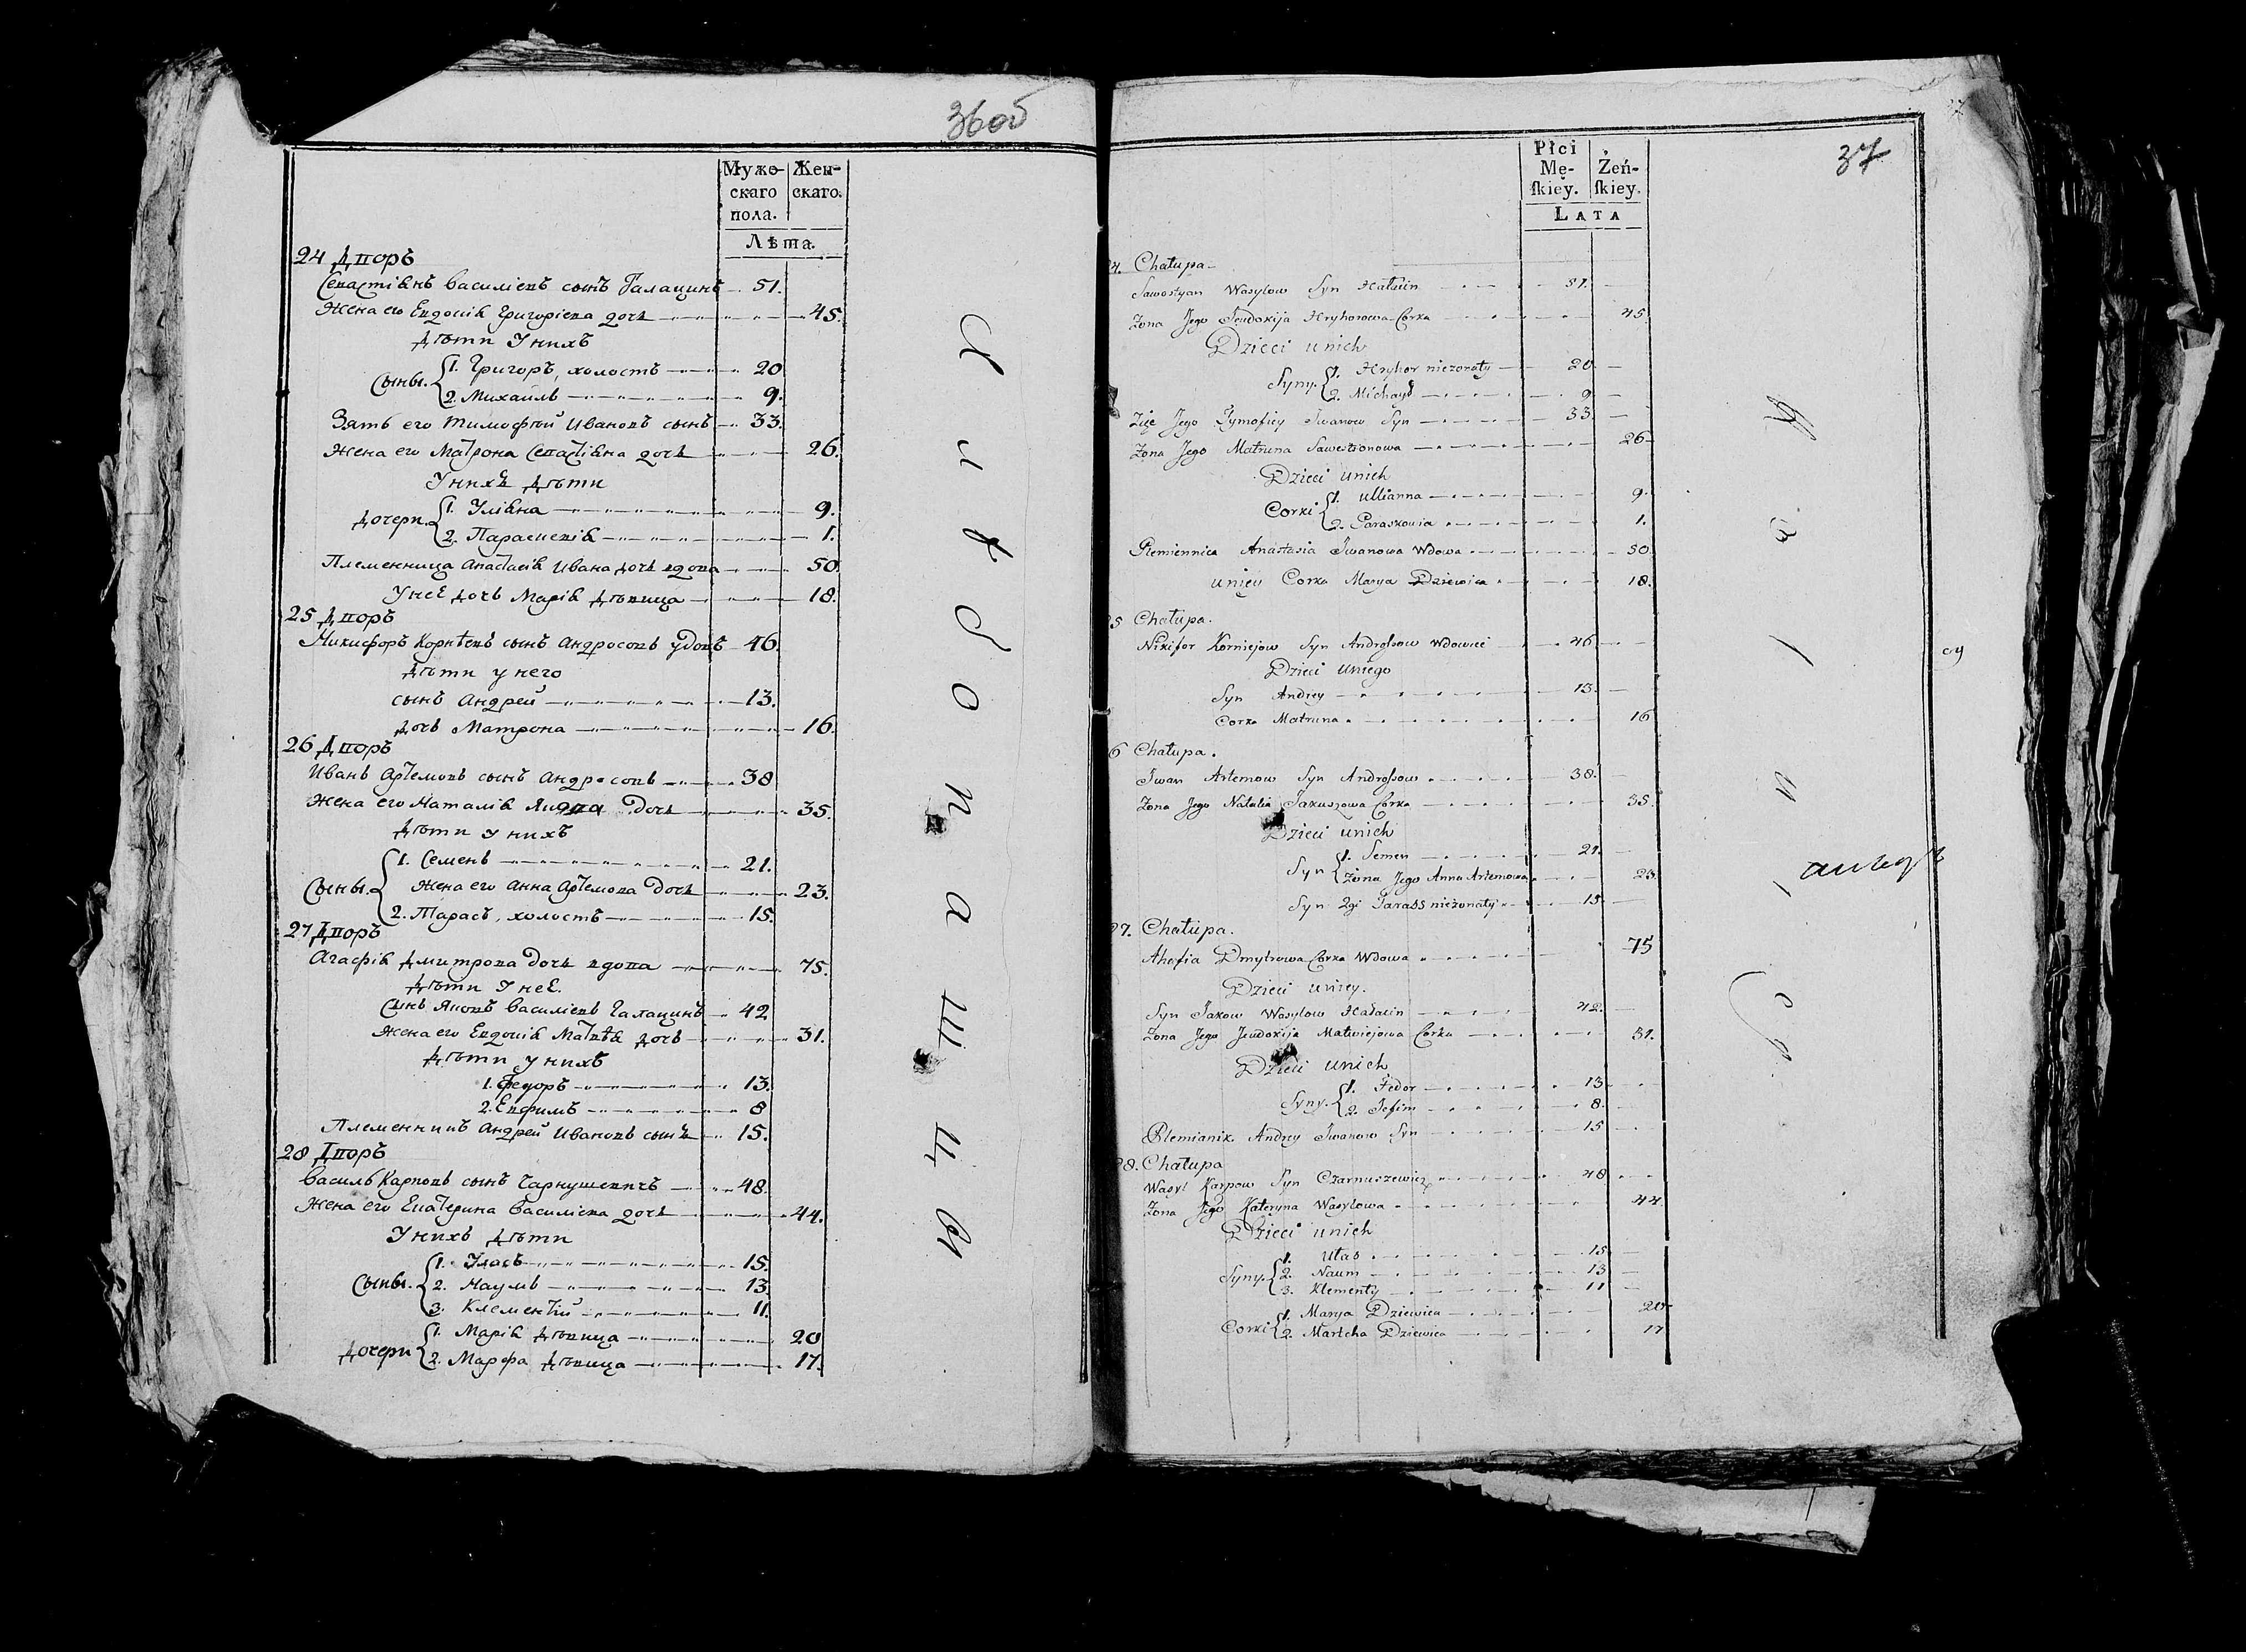 36об
Мужескаго пола. Женскаго.
Лѣта.
24 Дворъ
Севастіянъ Василіевъ сынъ Галацинъ 51.
Жена его Евдокія Григоріева дочь 45.
Дѣти У нихъ
Сыны. 1. Григоръ, холостъ 20
2. Михаилъ 9.
Зять его Тимофѣй Ивановъ сынъ 33.
Жена его Матрона Севастіяна дочь 26.
У нихъ Дѣти
Дочери. 1. Уліяна 9.
2. Параскевія 1.
Племенница Анастасія Ивана дочь вдова 50
У неЕ дочь Марія Дѣвица 18.
25 Дворъ
Никифоръ Корнѣевъ сынъ Андросовъ удовъ 46.
Дѣти у него
сынъ Андрей 13.
Дочь Матрона 16.
26 Дворъ
Иванъ Артемовъ сынъ Андросовъ 38
Жена его Наталія дочь 35.
Дѣти у нихъ
Сыны. 1. Семенъ 21.
Жена его Анна Артемова дочь 23.
2. Тарасъ, холостъ 15.
27 Дворъ
Агафія Дмитрова дочь вдова 75.
Дѣти У неЕ.
Сынъ Яковъ Василіевъ Галацинъ 42
Жена его Евдокія Матвѣя дочь 31.
Дѣти у нихъ
1. Федоръ 13.
2. Евфимъ 8
Племенникъ Андрей Ивановъ сынъ 15.
28 Дворъ
Василь Карповъ сынъ Чарнушевичъ 48.
Жена его Екатерина Василіева дочь 44.
У нихъ Дѣти
Сыны. 1. Уласъ 15.
2. Наумъ 13.
3. Клементій 11.
Дочери 1. Марія Дѣвица 20
2. Марфа Дѣвица 17.
37
Płci Męſkiey. Żeńſkiey.
LATA
4. Chałupa
Sawostyan Wasylow Syn Hałacin 51.
Zona Jego Jeudokija Hryhorowa Corka 45
Dzieci unich
Syny. 1. Hryhor niezonaty 20
2. Michaył 9
Zięc Jego Tymofiey Jwanow Syn 33
Zona Jego Matruna Sawestionowa 26
Dzieci unich
Corki 1. Ullianna 9.
2. Paraskowia 1.
Plemiennica Anastasia Jwanowa Wdowa 50
uniey Corka Marya Dziewica 18.
5 Chałupa.
Nikifor Korniejow Syn Androſsow Wdowiec 46
Dzieci uniego
Syn Andrey 13.
Corka Matruna 16
6 Chałupa.
Jwan Artemow Syn Androſsow 38.
Zona Jego Natalia Jakuszowa Corka 35.
Dzieci unich
Syn 1. Semen 21.
Zona Jego Anna Artemowa 23.
Syn 2gi Tarass niezonaty 15
27. Chałupa.
Ahafia Dmytrowa Corka Wdowa 75
Dzieci uniey.
Syn Jakow Wasylow Hałacin 42.
Zona Jego Jeudokija Matwiejowa Corka 31.
Dzieci unich
Syny. 1. Fedor 13
2. Jefim 8.
Plemianik Andrey Jwanow Syn 15
28. Chałupa
Wasyl Karpow Syn Czarnuszewicz 48
Zona Jego Kateryna Wasylowa 44
Dzieci unich
Syny. 1. Ułas 15
2. Naum 13
3. Klementy 11
Corki 1. Marya Dziewica 20
2. Martcha Dziewica 17